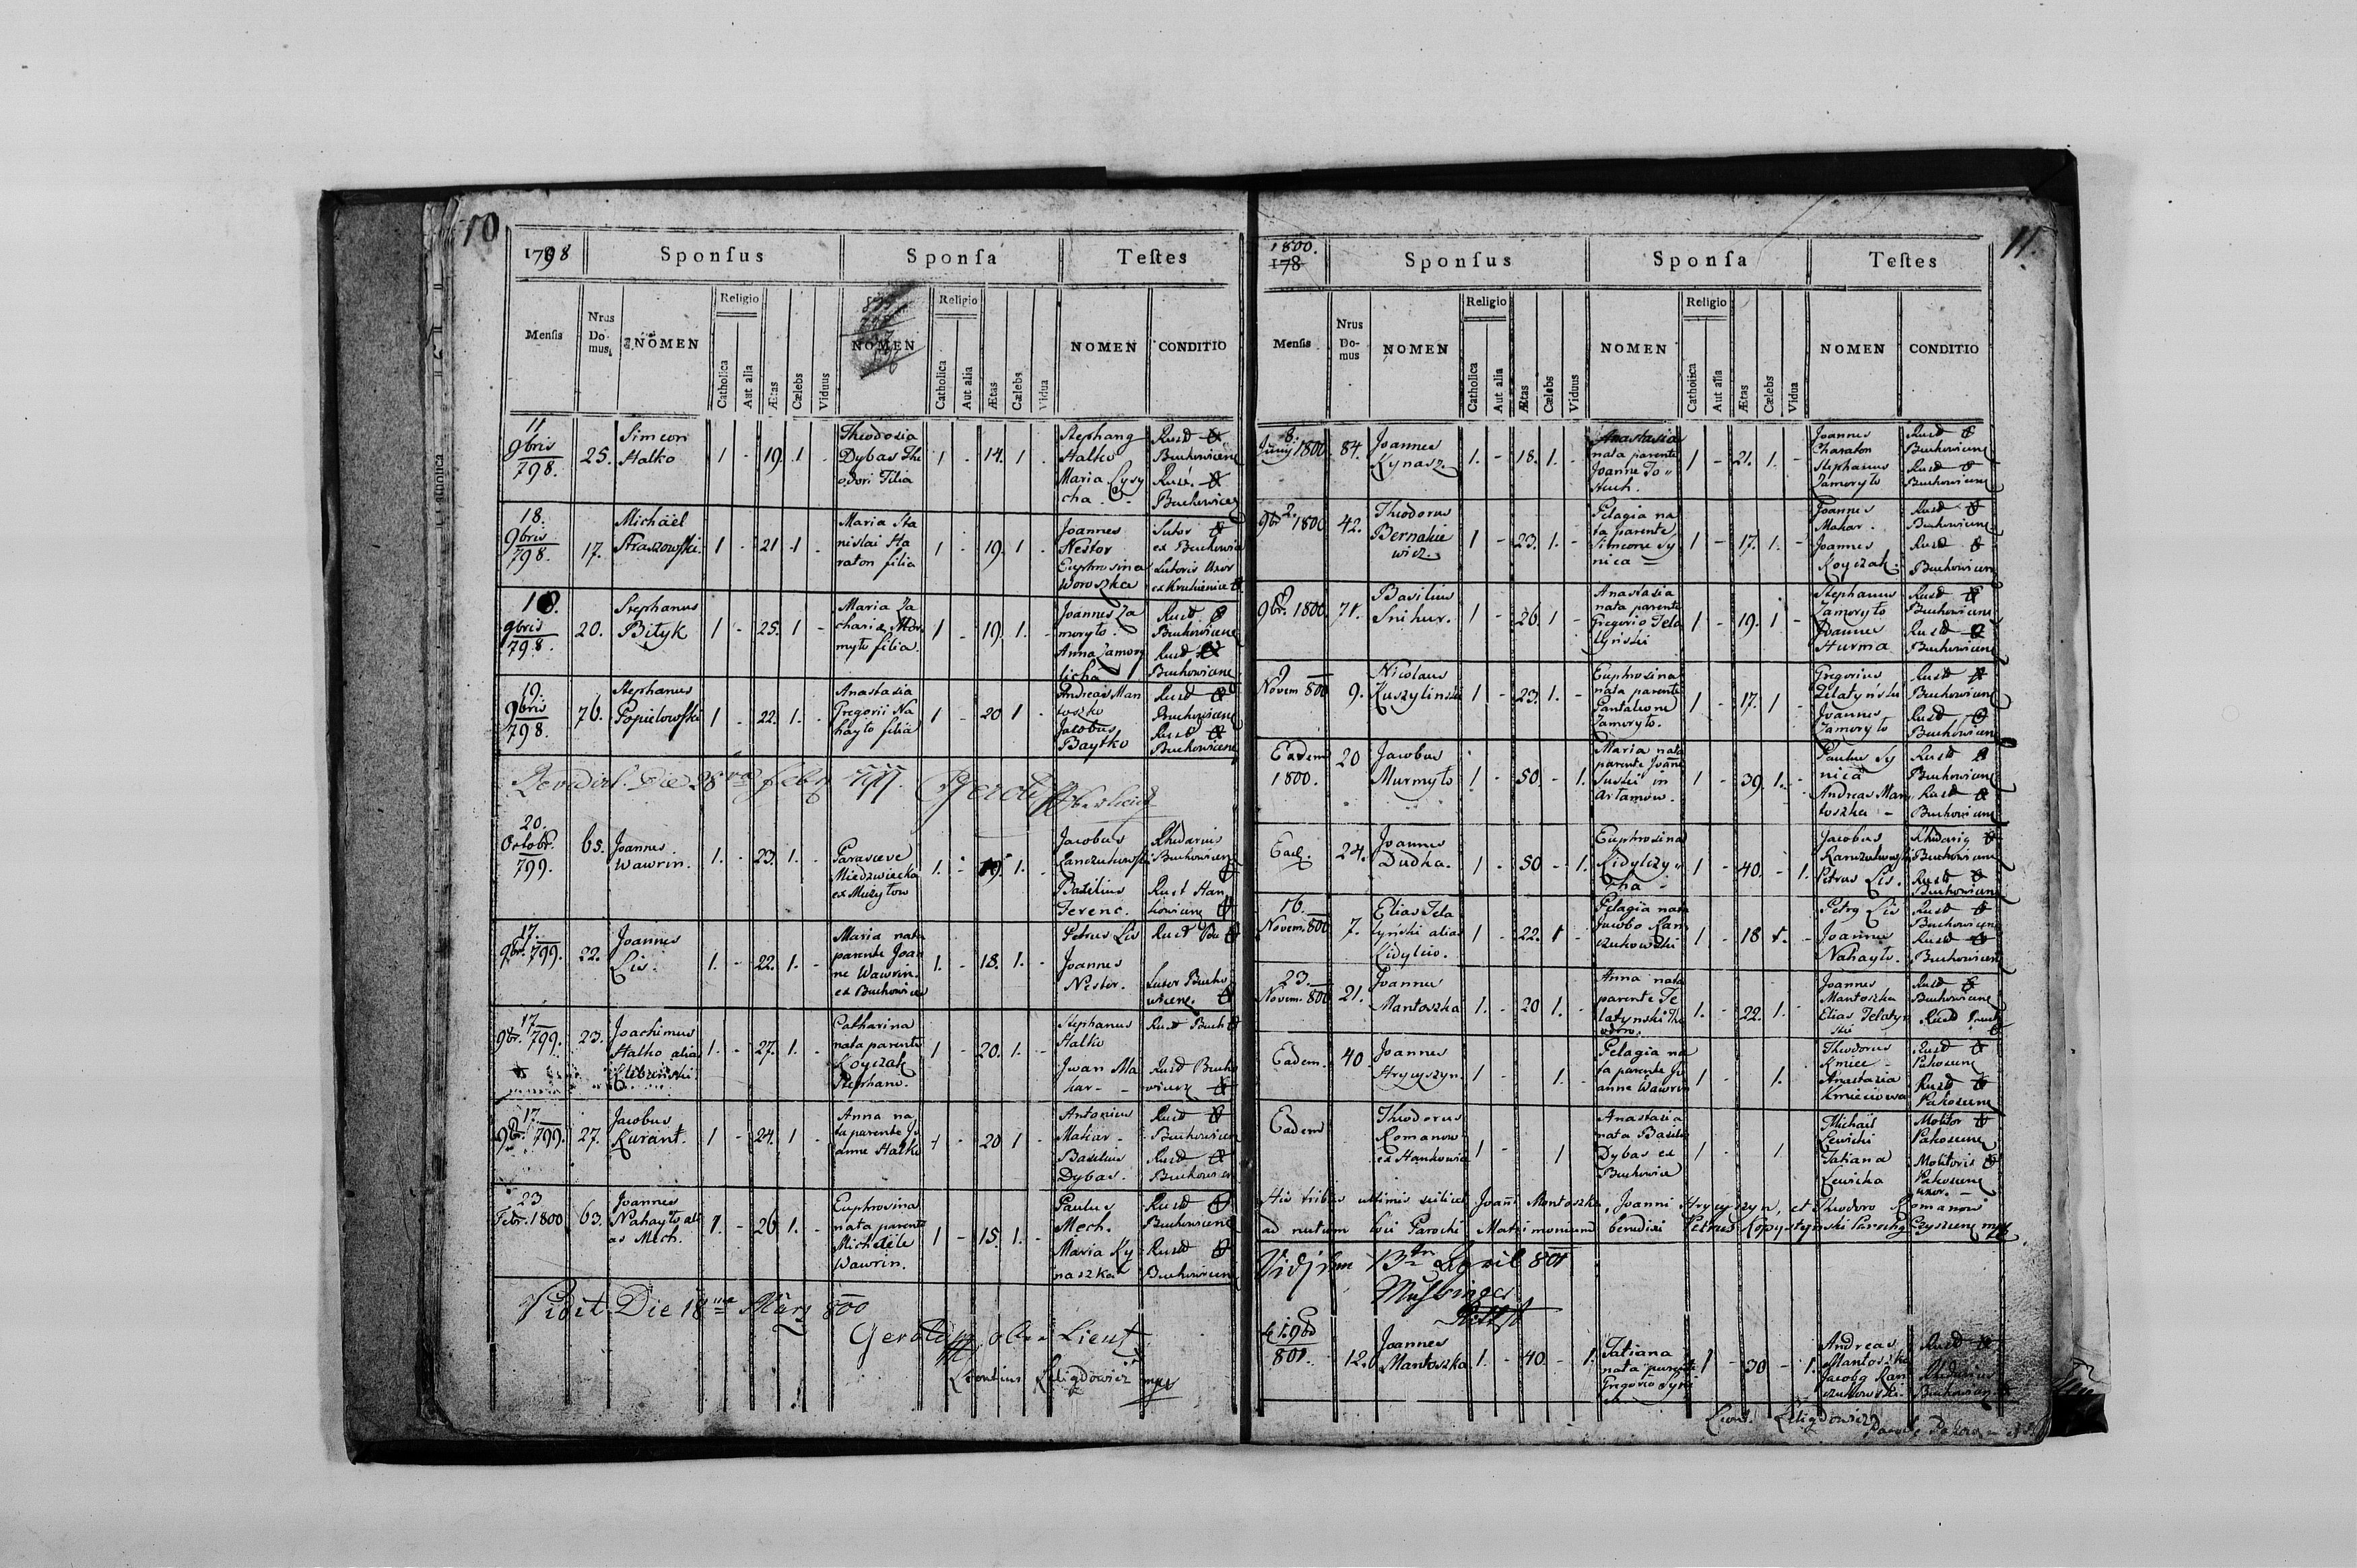 10
1798 Sponsus Sponsa Testes
Mensis Nrus Domus NOMEN Religio Catholica Aut alia Ætas Cælebs Viduus NOMEN Religio Catholica Aut alia Ætas Cælebs Vidua NOMEN CONDITIO
11
9bris
798.
25.
Simeon
Halko
1 - 19. 1 -
Theodosia
Dybas The
odori Filia
1 - 14. 1 -
Halko
Maria Lysy
cha
Rust
Buchoviceng
Rust.
18.
9bris
798.
17.
Michäel
1 - 21 1 -
Maria Sta
nislai Ha
raton filia
1 - 19. 1 -
Joannes
Nestor
Euphrosina
Woroszka
Sutor
ex Buchowice
Sutoris Uxor
18.
9bris
798.
20.
Stephanus
Bityk
1 - 25. 1 -
Maria Za
chariæ
filia
1 - 19. 1. -
Joannes Za
moryto.
Anna Zamory
licha
Rust
Buchowiceng
Rust
Buchowiceng
19.
9bris
798.
76.
Stephanus
Popielowski
1 - 22. 1. -
Anastasia
Gregorii Na
hayto filia
1 - 20 1 -
Andreas Man
toszko
Jacobus
Baytko
Rust
Buchowiceng
Rust
Buchowiceng
20.
Octobr.
799.
65.
Joannes
Wawrin.
1. - 23. 1. -
Parasceve
Miedzwiecka
ex Mizytow
1. - 19. 1. -
Jacobus
Basilius
Ferenc.
Buchowiceng
Rust Han
kowiceng
17.
9br. 799.
22.
Joannes
Lis.
1. - 22. 1. -
Maria nata
parente Joan
ne Wawrin.
ex Buchowice
1. - 18. 1. -
Petrus Lis
Joannes
Nestor.
Rust Bu
Sutor Bucho
wiceng.
17
9br. 799.
23.
Joachimus
Halko alias
1. - 27. 1. -
Catharina
nata parente
Koyczak
Stephano.
1 - 20. 1. -
Stephanus
Halko
Iwan Ma
har
Rust Buch
Rust Bucho
wiceng
17.
9br. 799.
27.
Jacobus
Kurant.
1 - 24. 1 -
Anna na
ta parente Jo
anne Halko
1 - 20 1 -
Antonius
Mahar
Basilius
Dybas.
Rust
Buchowiceng
Rust
Buchowice
23
Febr. 1800
63.
Joannes
Nahayto ali
as Mech.
1. - 26 1. -
Euphrosina
nata parente
Michäele
Wawrin.
1 - 15. 1. -
Paulus
Mech.
Maria Ky
naszka
Rust
Buchowiceng
Rust
Buchowiceng
Vidit Die 18 März 800
Leontius Keligdowicz mpp
11.
1800.
178
Sponsus Sponsa Testes
Mensis Nrus Domus NOMEN Religio Catholica Aut alia Ætas Cælebs Viduus NOMEN Religio Catholica Aut alia Ætas Cælebs Vidua NOMEN CONDITIO
8.
Junij 1800
84.
Joannes
Kynasz.
1. - 18. 1. -
Anastasia
nata parente
Joanne
1 - 21. 1. -
Joannes
Charaton
Stephanus
Zamoryto
Rust
Buchowiceng
Rust
Buchowiceng
2.
9br 1800
42.
Theodorus
Bernakie
wicz.
1 - 23. 1. -
Pelagia na
ta parente
Simeone Sy
nica
1 - 17. 1. -
Joannes
Mahar.
Joannes
Koyczak.
Rust
Buchowiceng
Rust
Buchowiceng
9
9br. 1800.
71.
Basilius
Snihur.
1 - 26 1 -
Anastasia
nata parente
Gregorio Tela
tyński
1 - 19. 1 -
Stephanus
Zamoryto
Joannes
Hurma
Rust
Buchowiceng
Rust
Buchowiceng
9
Novem 800
9.
Nicolaus
Kuszylinski
1 - 23. 1. -
Euphrosina
nata parente
Pantaleone
Zamoryto.
1 - 17. 1 -
Gregorius
Telatyński
Joannes
Zamoryto
Rust
Buchowiceng
Rust
Buchowiceng
Eadem
1800.
20
Jacobus
Murmyto
1 - 50 - 1.
Maria nata
parente Joane
in
Artamow.
1 - 39. 1. -
Paulus Sy
nica
Andreas Man
toszka
Rust
Buchowiceng
Rust
Buchowiceng
Ead.
24.
Joannes
Dudka.
1 - 50 - 1.
Euphrosina
Kidylczy
cha
1 - 40. - 1.
Jacobus
Petrus Lis.
Buchowiceng
Rust
Buchowiceng
16.
Novem. 800
7.
Elias Tela
tyński alias
Kidylio.
1 - 22. 1 -
Pelagia nata
Jacobo Kan
czukowski
1 - 18 1. -
Petrg Lis
Joannes
Nahayto.
Rust
Buchowiceng
Rust
Buchowiceng
23.
Novem. 800
21.
Joannes
Mantoszka
1. - 20 1. -
Anna nata
parente Te
latynski The
odoro.
1. - 22. 1. -
Joannes
Mantoszka
Elias Telatyn
ski
Rust
Buchowiceng
Rust Buch
Eadem.
40
Joannes
Hrycyszyn.
1 - 1. -
Pelagia na
ta parente Jo
anne Wawrin
1 - 1.
Theodorus
Kmiec
Anastasia
Kmieciowa
Rust
Pakoseng
Rust
Pakoseng
Eadem
Theodorus
Romanow
ex Hankowice
1 - 1
Anastasia
nata Basilio
Dybas ex
Buchowice
1 - 1.
Michäil
Lewicki
Tatiana
Lewicka
Molitor
Pakoseng
Molitoris
Pakoseng
uxor.
His tribus ultimis scilicet Joañi Mantoszka, Joanni Hrycyszyn, et Theodoro Romanow
ad nutum loci Parochi Matrimonium benedixi Petrus Kopystynski Parochg Czyszceng mpp.
13 April 801
801.
12.
Joannes
Mantoszka
1. - 40. - 1.
Tatiana
nata parente
Gregorio Syni
ca
1 - 30 - 1.
Andreas
Mantoszka
Jacobg Kan
czukowski.
Rust
Buchowiceng
Leont. Keligdowicz